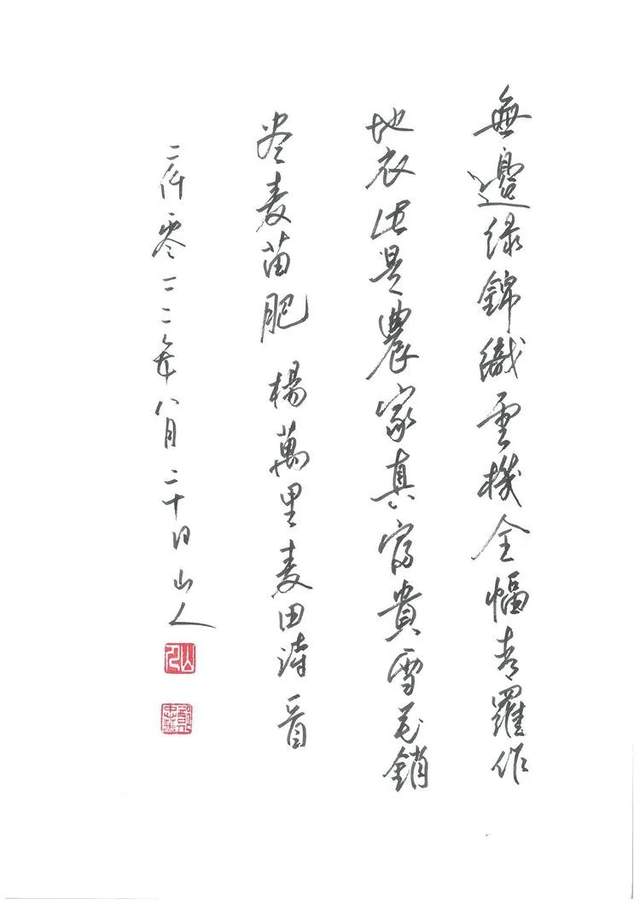 無邊绿錦織雲機全幅青羅作
地衣此是農家真富貴雪花銷
尽麦苗肥 楊萬里麦田诗一首
二仟零二二年八月二十日山人
山人